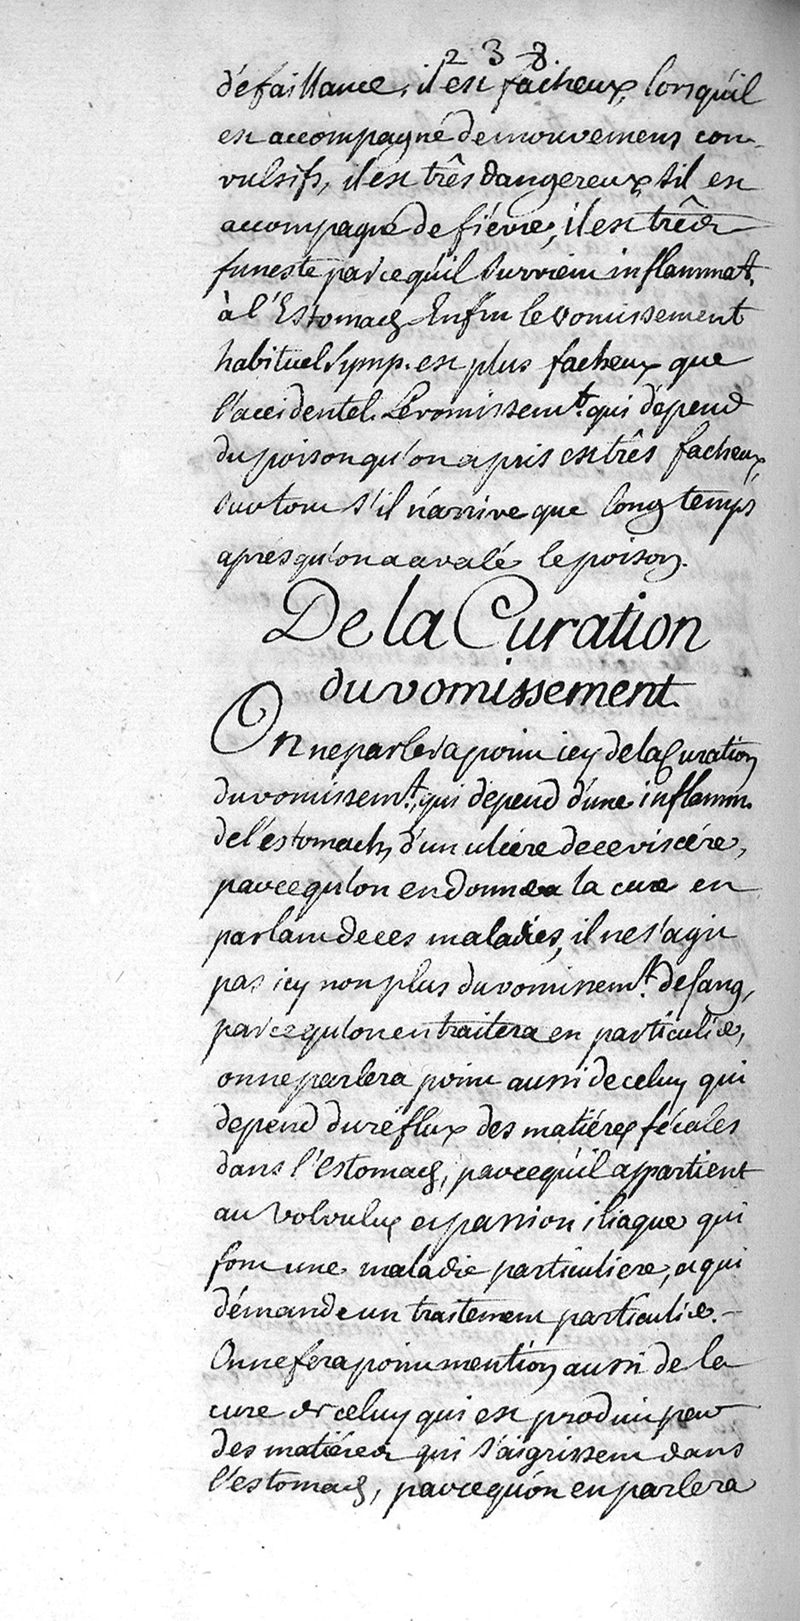 238.
défaillance, il est facheux, lorsqu'il
est accompagné de mouvemens con-
vulsifs, il est très dangereux s'il est
accompagné de fiévre, il est très
funeste parcequ'il survient inflammat.
à l'Estomach Enfin le vomissement
habituel Symp. est plus facheux que
l'accidentel. Le vomissemt. qui dépend
du poison qu'on a pris est très facheux,
surtout s'il n'arrive que long temps
aprés qu'on a avalé le poison.
De la Curation
du vomissement.
On ne parlera point icy de la Curation
du vomissemt. qui dépend d'une inflamm.
de l'éstomach, d'un ulcére de ce viscére,
parcequ'on en donnera la cure en
parlant de ces maladies, il ne s'agit
pas icy non plus du vomissemt. de sang,
parcequ'on en traitera en particulier,
on ne parlera point aussi de celuy qui
depend du réflux des matiéres fécales
dans l'Estomach, parcequ'il appartient
au Volvulus et passion iliaque qui
font une maladie particuliere, et qui
démande un traitement particulier. -
On ne fera point mention aussi de la
cure de celuy qui est produit par
des matiéres qui s'aigrissent dans
l'estomach, parcequ'on en parlera